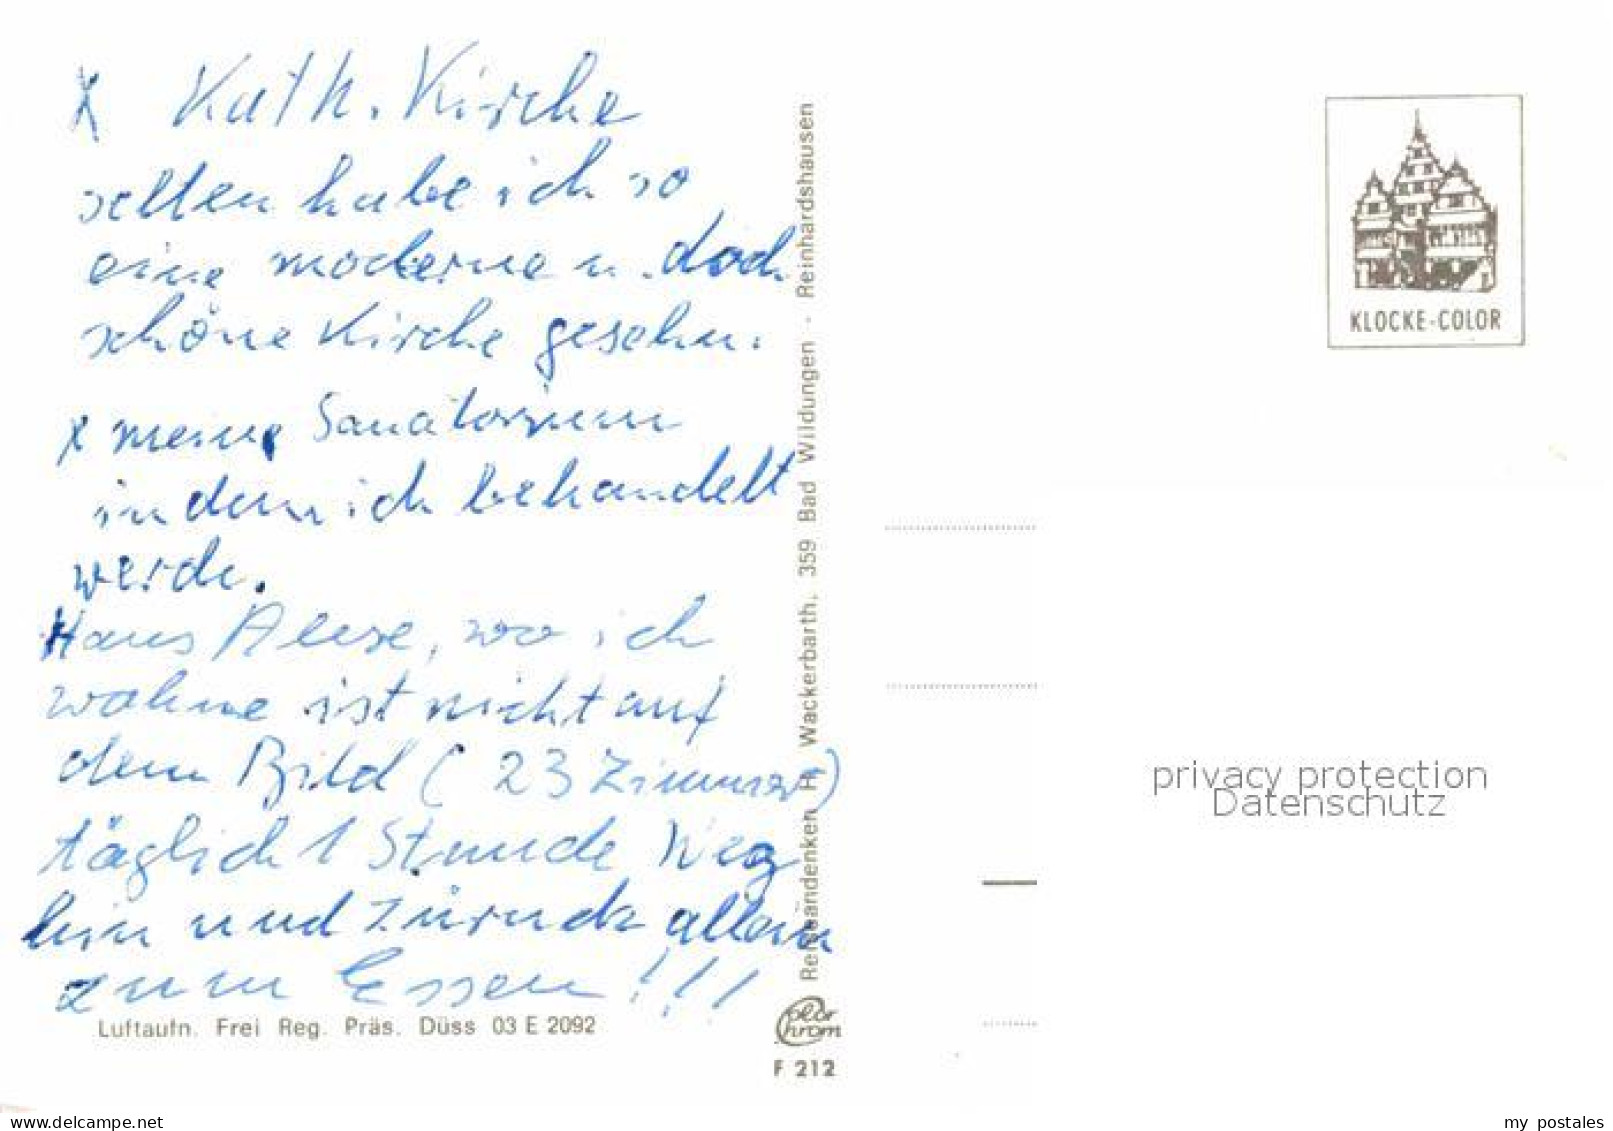 x Kath. Kirche
selten habe ich so
eine moderne u. doch
schöne Kirche gesehn.
x meine Sanatorium
in dem ich behandelt
werde.
Haus , wo ich
wohne ist nicht auf
dem Bild ( 23 Zimmer)
täglich 1 Stunde Weg
hin und zürück allein
zum Essen !!!
Luftaufn. Frei Reg. Präs. Düss 03 E 2092
Reiseandenken H. Wackerbarth, 359 Bad Wildungen - Reinhardshausen
Color Chrom
F 212
KLOCKE-COLOR
privacy protection
Datenschutz
www.delcampe.net
my postales